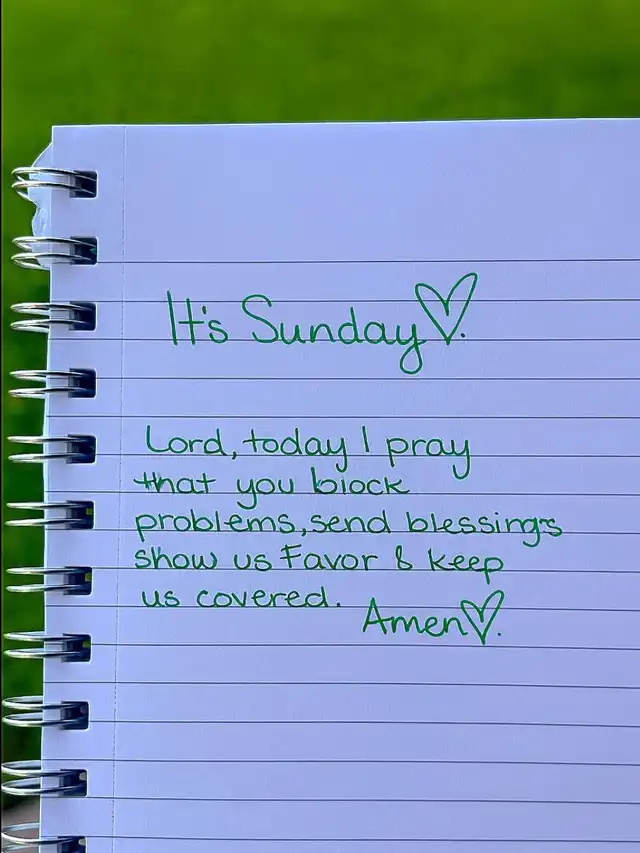 It's Sunday♡.
Lord, today I pray
that you block
problems, send blessings
show us Favor & keep
us covered.
Amen♡.